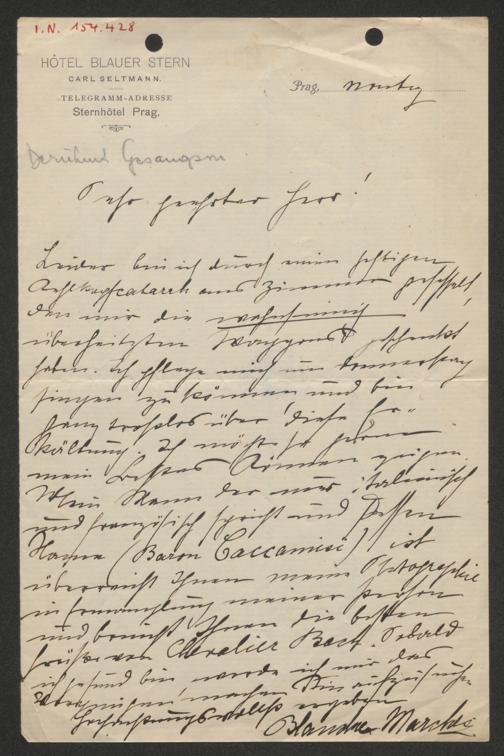 I.N. 154.428
HÔTEL BLAUER STERN
CARL SELTMANN.
TELEGRAMM-ADRESSE
Sternhôtel Prag.
Prag, Montag
Sehr geehrter Herr!
Leider bin ich durch einen heftigen
Kehlkopfcatarrh ans Zimmer gefesselt,
den mir die wahnsinnig
überheitzten Waggons geschenkt
haben. Ich pflege mich um Donnerstag
singen zu können und bin
ganz trostlos über diese Er-
kältung. Ich möchte so gerne
mein bestes Können zeigen.
Mein Mann der nur italienisch
und französisch spricht und dessen
Name (Baron Caccamisi) ist
überreicht Ihnen meine Photographie
in Ermanglung meiner Person
und bringt Ihnen die besten
Grüße von Chevalier Bach. Sobald
ich gesund bin werde ich mir das
Vergnügen machen Sie aufzusuchen
Hochachtungsvollst ergeben
Blanche Marchesi